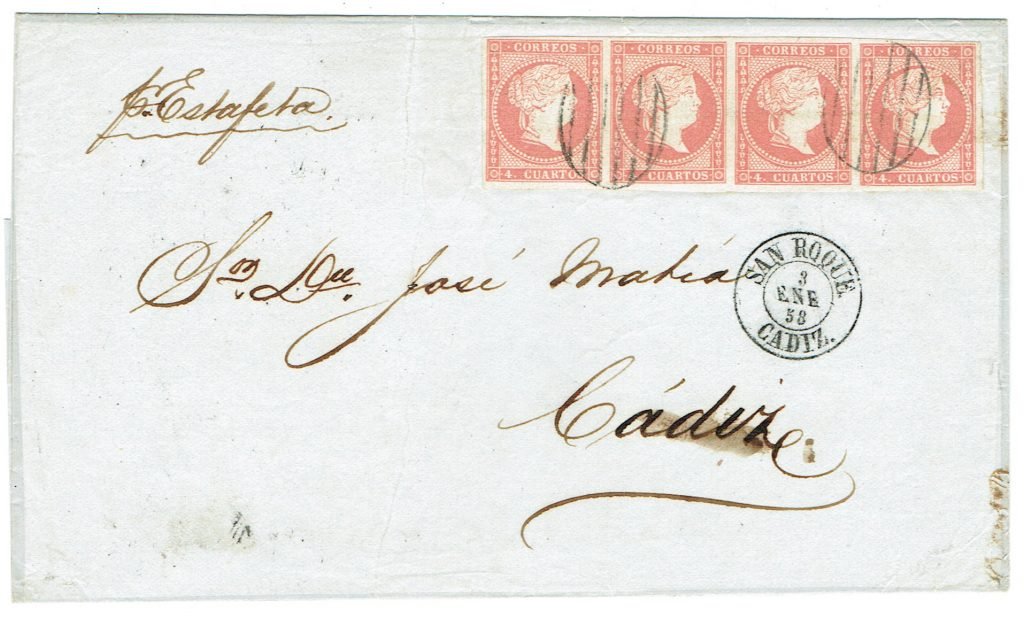 CORREOS CORREOS CORREOS CORREOS
4. CUARTOS 4. CUARTOS 4. CUARTOS 4. CUARTOS
p. Estafeta.
José Matia
Cádiz
SAN ROQUE
3
ENE
58
CADIZ.